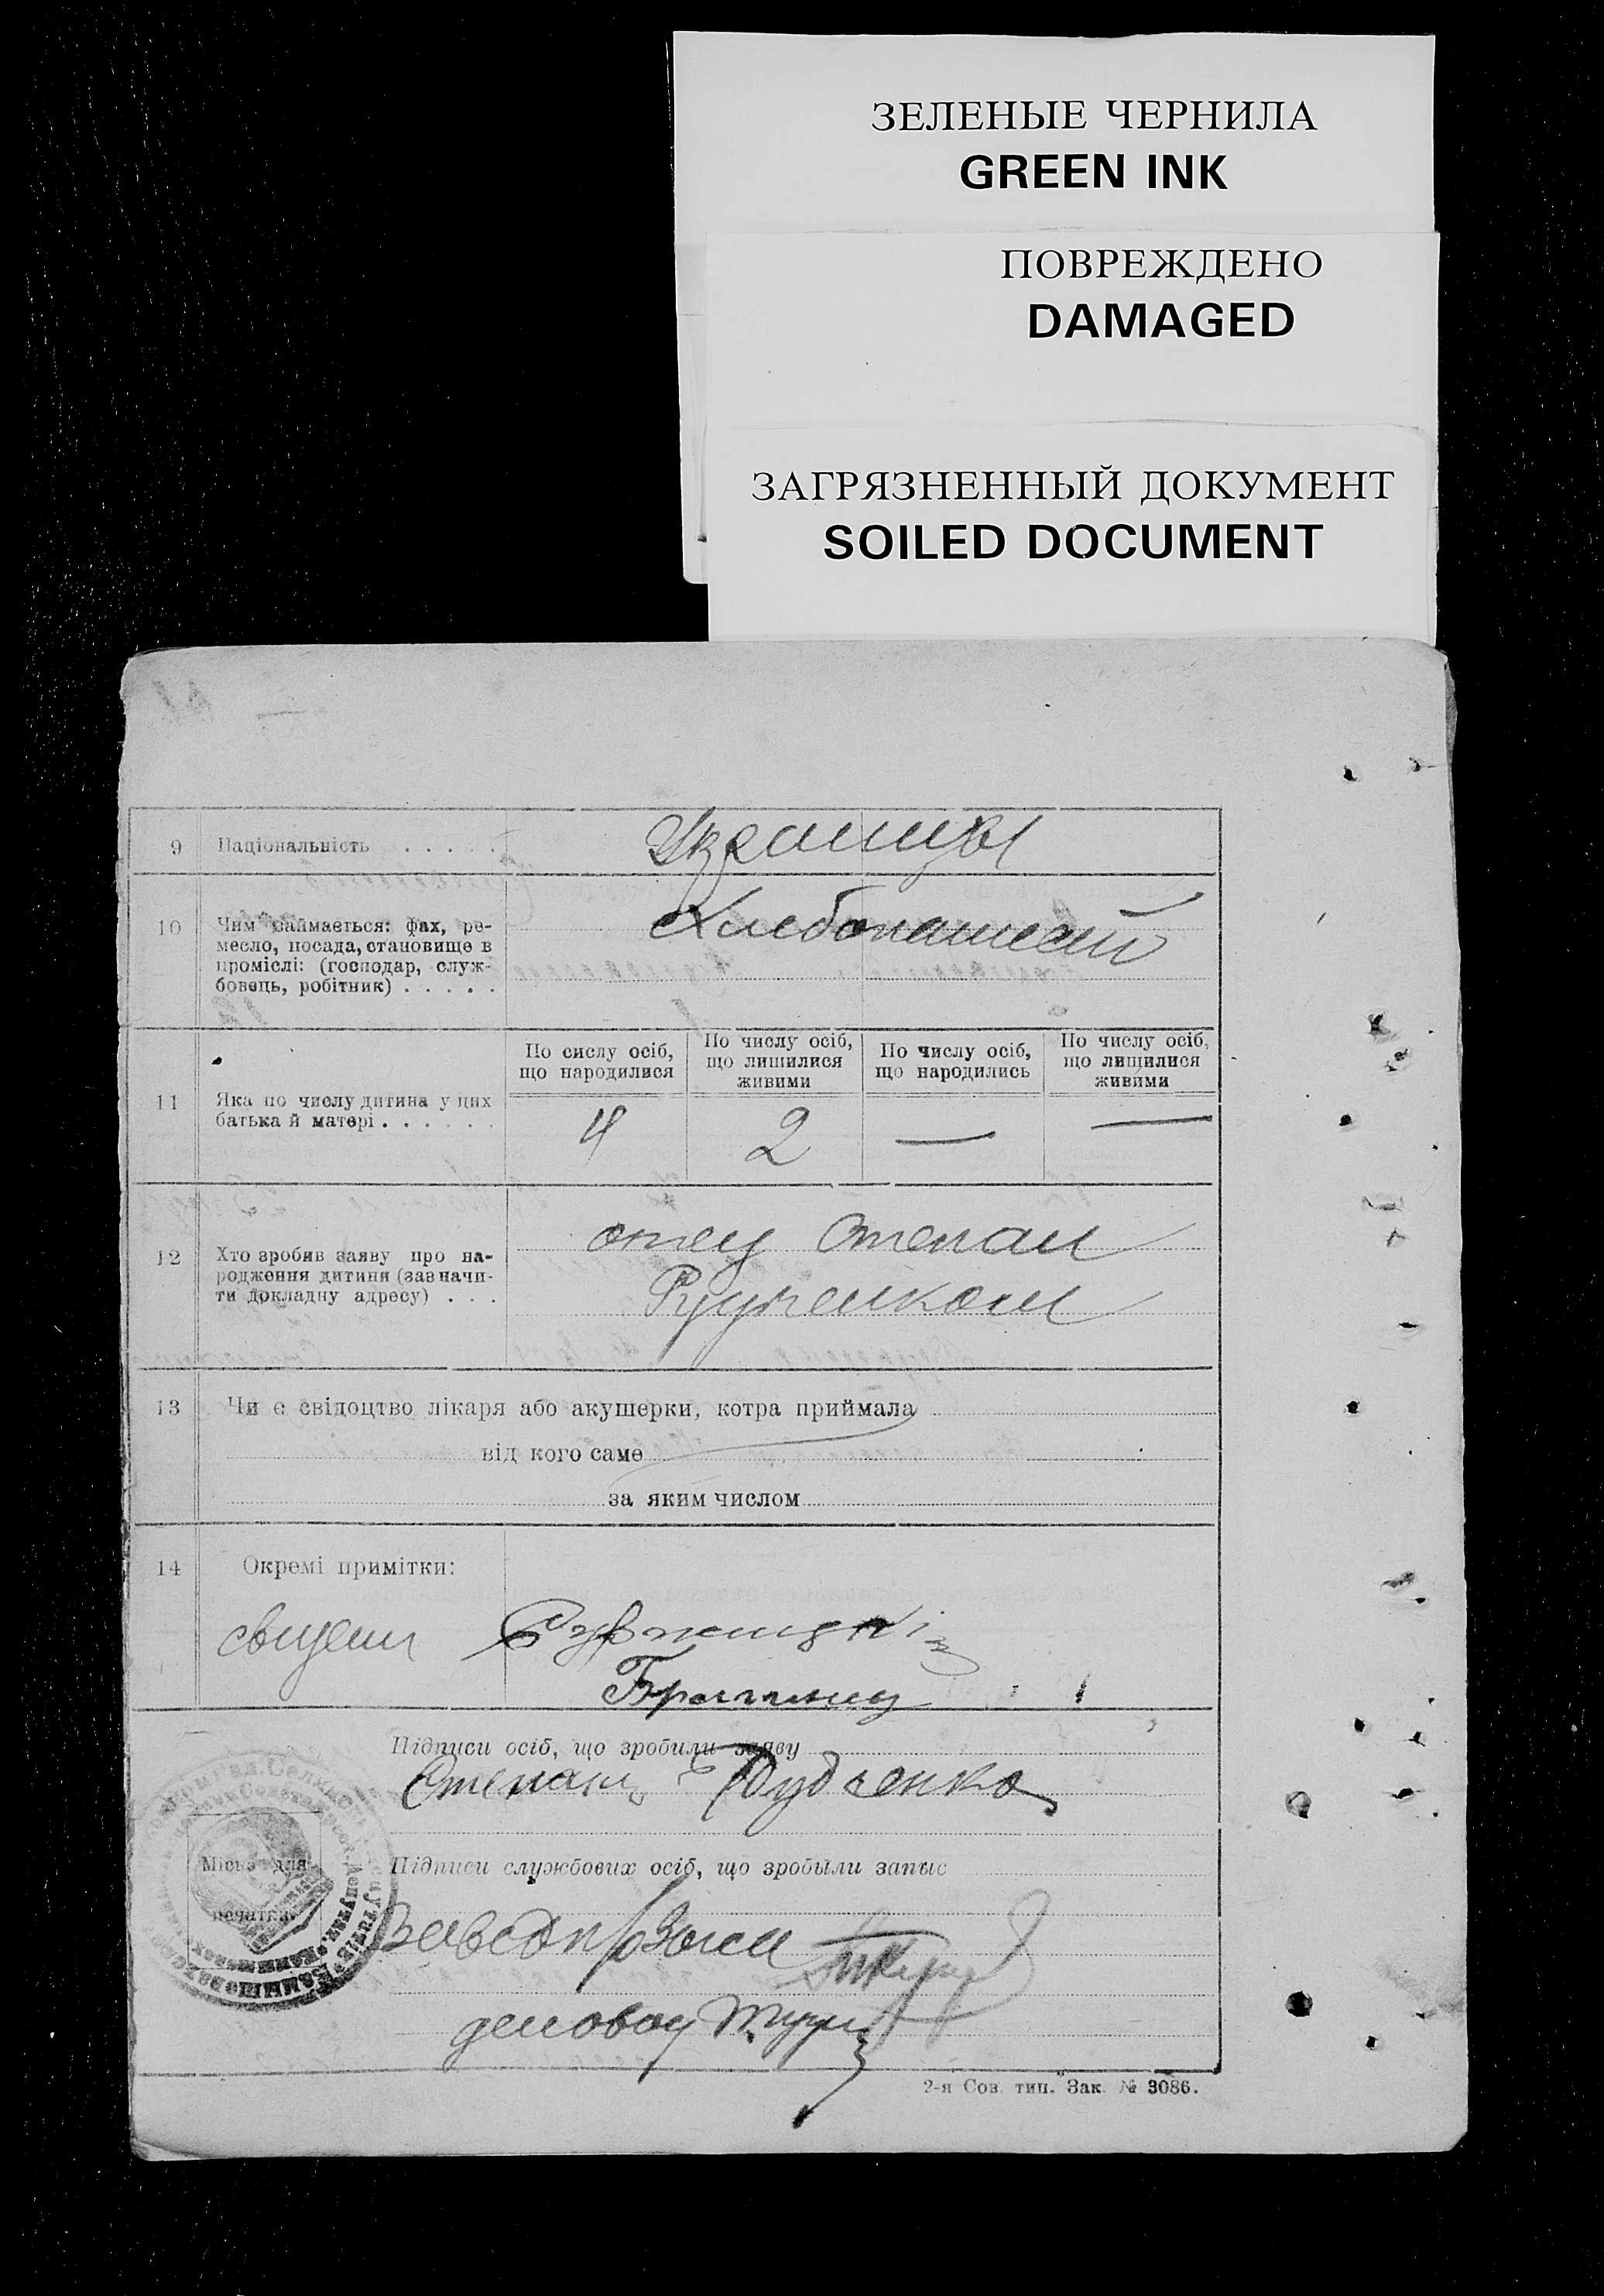 ЗЕЛЕНЫЕ ЧЕРНИЛА
GREEN INK
ПОВРЕЖДЕНО
DAMAGED
ЗАГРЯЗНЕННЫЙ ДОКУМЕНТ
SOILED DOCUMENT
9 Національність . . . . .
10 Чим займається: фах, ре-
месло, посада, становище в
проміслі: (господар, служ-
бовець, робітник) . . . . .
Хлебопашест
11 Яка по числу дитина у цих
батька й матері . . . . . .
По сислу осіб,
що народилися
По числу осіб,
що лишилися
живими
По числу осіб,
що народились
По числу осіб,
що лищилися
живими
4 2 — —
12 Хто зробив заяву про на-
родження дитини (зазначи-
ти докладну адресу) . . .
отец Степан
13 Чи є свідоцтво лікаря або акушерки, котра приймала
від кого саме
за яким числом
14 Окремі примітки:
Підписи осіб, що зробили заяву
Степан Дудченко
Місце для
печатки
Підписи службових осіб, що зробыли запис
2-я Сов. тип. Зак. № 3086.